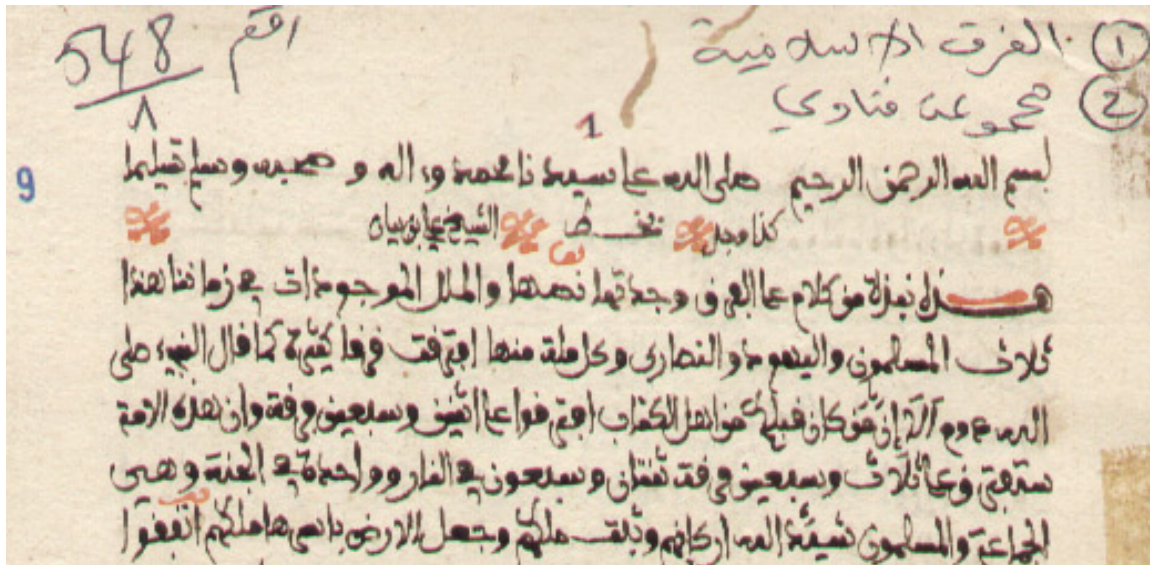 ① الفرق الاسلامية
② مجموعة فتاوي
رقم 548
٨
1
9
بسم الله الرحمن الرحيم صلى الله على سيدنا محمد وءاله وصحبه وسلم تسليما
كذا وجد بخط الشيخ علي بن بيان
هذه نبذة من كلام على الفرق وجدتها نصها والملل الموجودات في زماننا هذا
ثلاث المسلمون واليهود والنصارى وكل ملة منها افترقت فرقا كثيرة كما قال النبيء صلى
الله عليه وسلم ألا إن من كان قبلكم من اهل الكتاب افترقوا على اثنين وسبعين فرقة وان هذه الامة
ستفترق على ثلاث وسبعين فرقة ثنتان وسبعون في النار وواحدة في الجنة وهي
الجماعة والمسلمون شيد الله اركانهم وثبت ملكهم وجعل الارض باسرها ملكهم اتفقوا